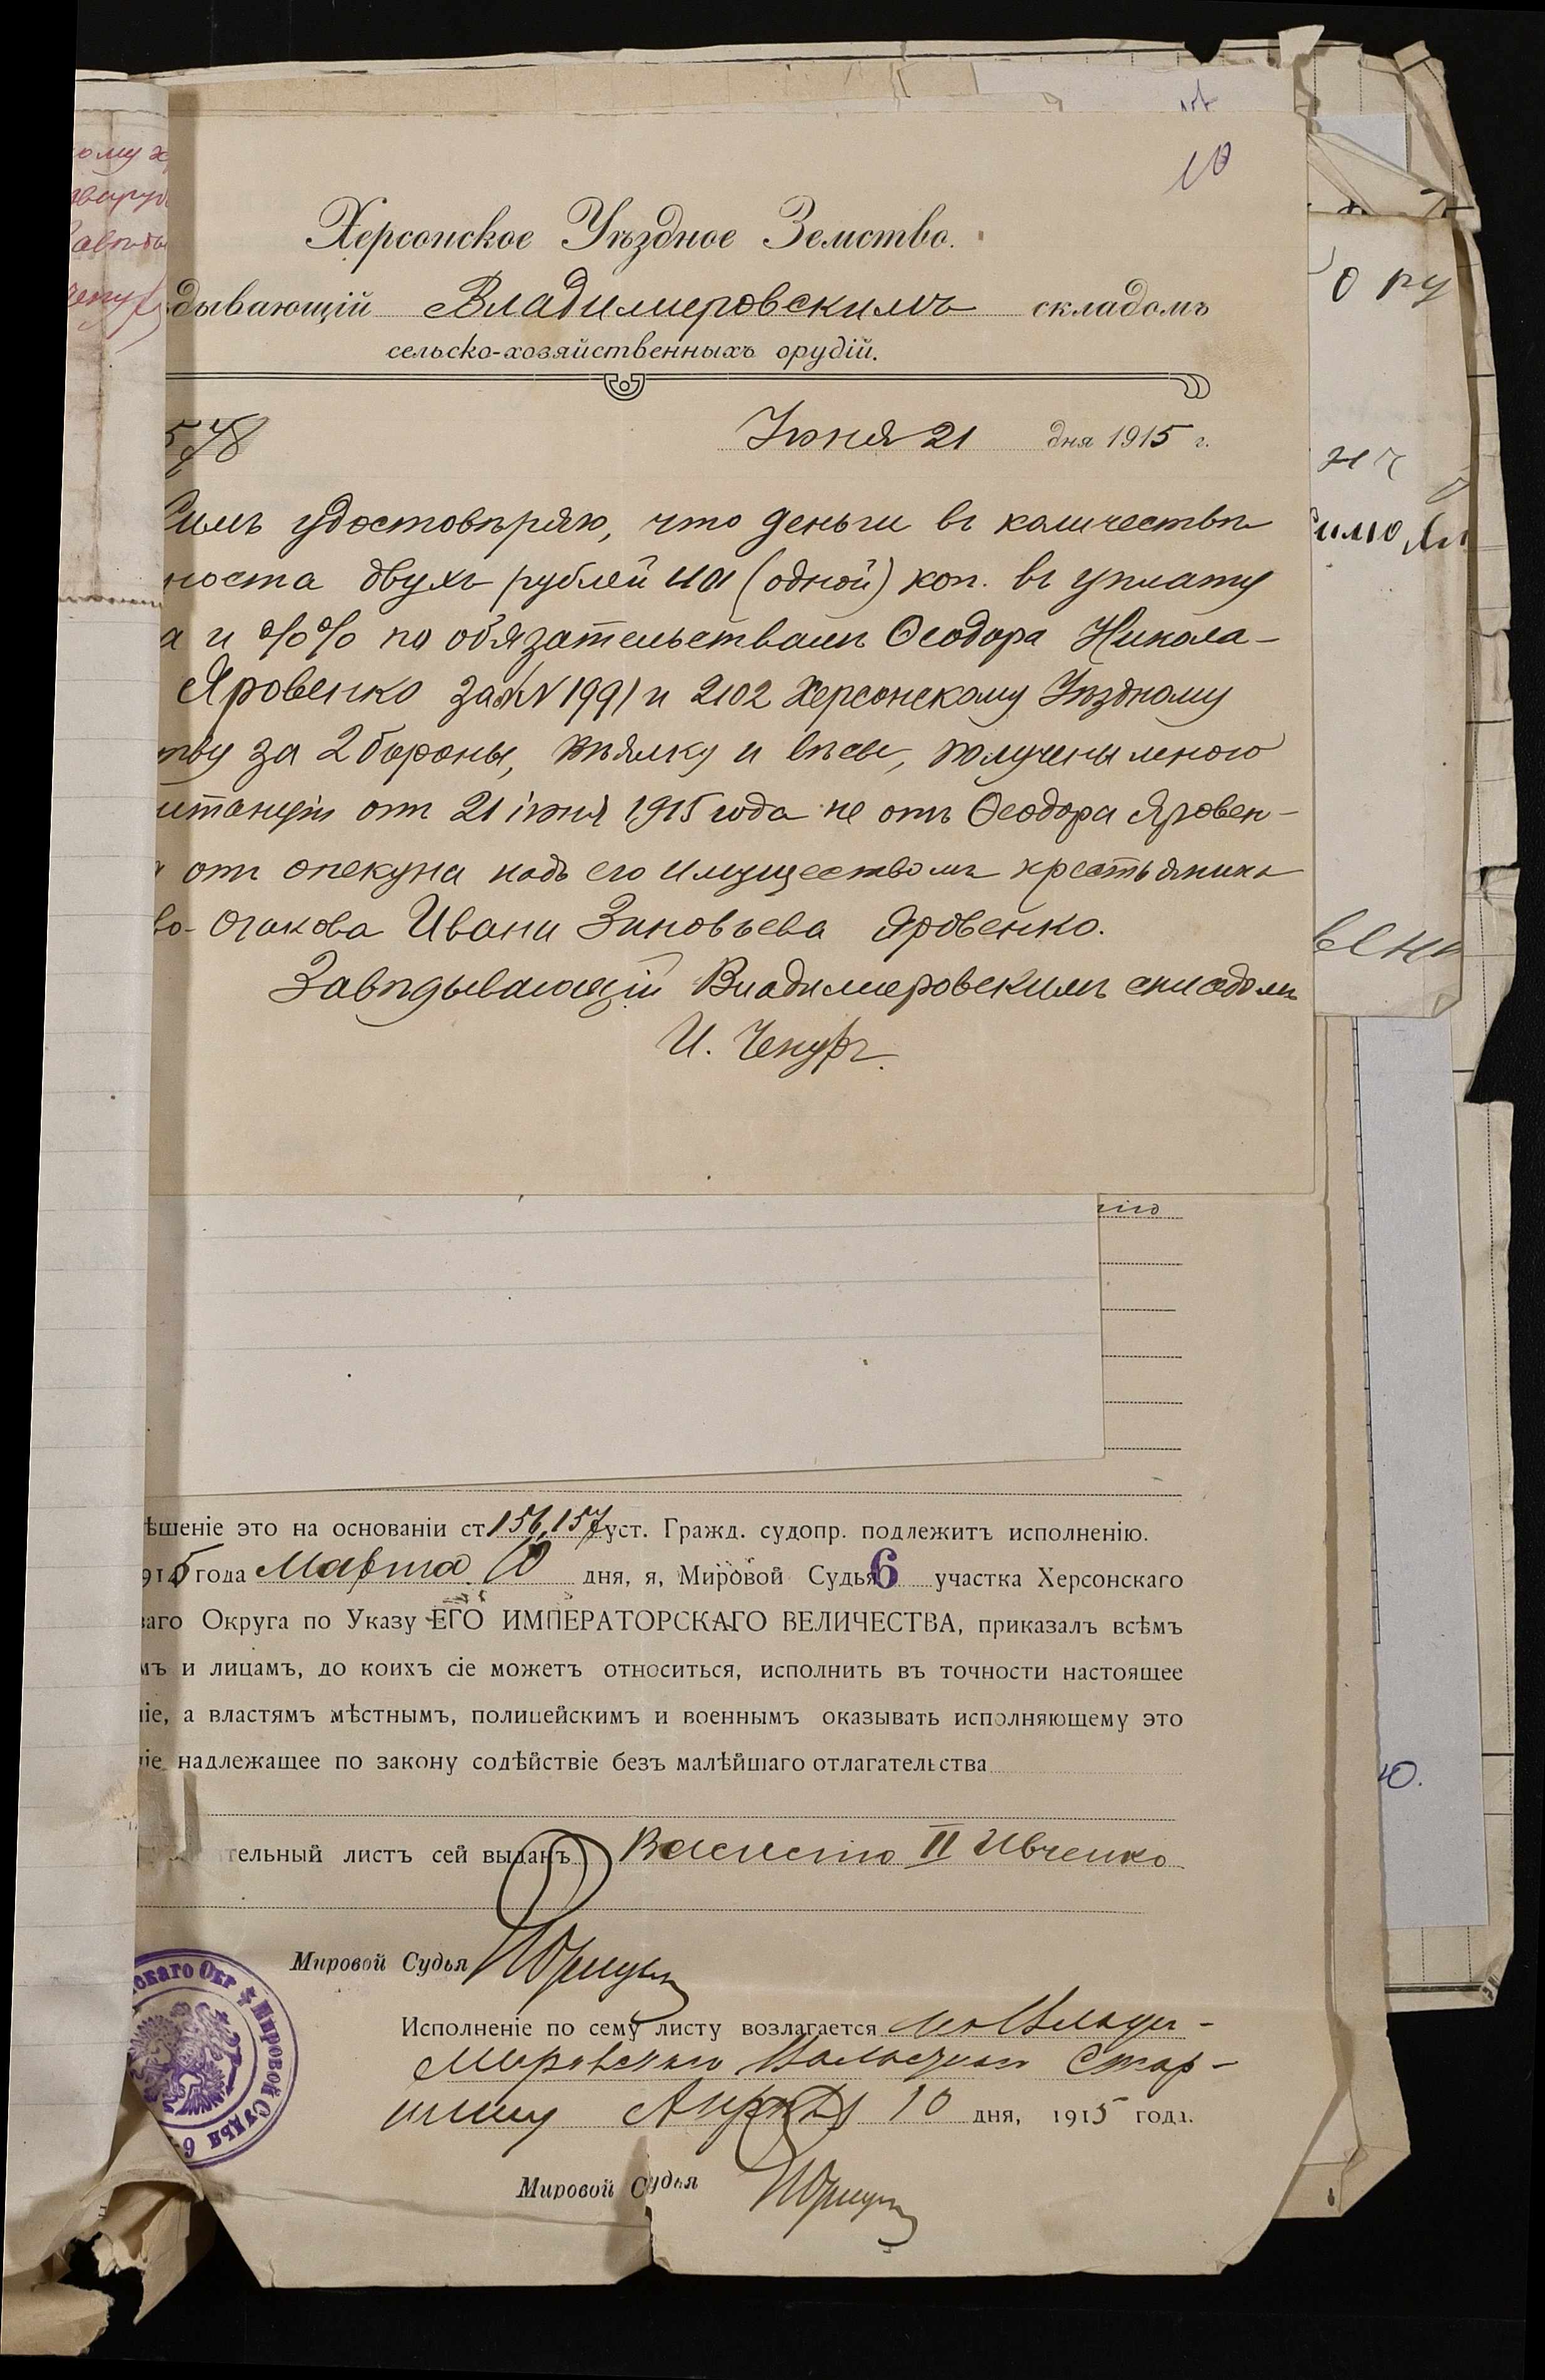 10
Херсонское Уѣздное Земство.
дывающій Владимировскимъ складомъ
сельско-хозяйственныхъ орудій.
578
Іюня 21 дня 1915 г.
Симъ удостовѣряю, что деньги въ количествѣ
носта двухъ рублей 01 (одной) коп. въ уплату
а и %% по обязательствамъ Ѳеодора Никола-
Яровенко за №№ 1991 и 2102 Херсонскому Уѣздному
тву за 2 бороны, вѣялку и вѣсы, получены мною
итанціи отъ 21 іюня 1915 года не отъ Ѳеодора Яровен-
отъ опекуна надъ его имуществомъ крестьянина
во-Очакова Ивана Зиновьева Яровенко.
Завѣдывающій Владимировскимъ складомъ
И.
ѣшеніе это на основаніи ст 156, 157 уст. Гражд. судопр. подлежитъ исполненію.
915 года Марта 10 дня, я, Мировой Судья 6 участка Херсонскаго
наго Округа по Указу ЕГО ИМПЕРАТОРСКАГО ВЕЛИЧЕСТВА, приказалъ всѣмъ
мъ и лицамъ, до коихъ сіе можетъ относиться, исполнить въ точности настоящее
ніе, а властямъ мѣстнымъ, полицейскимъ и военнымъ оказывать исполняющему это
ніе надлежащее по закону содѣйствіе безъ малѣйшаго отлагательства
тельный листъ сей выданъ Василію II Ивченко
Мировой Судья
скаго Окр Мировой Судья 6
Исполненіе по сему листу возлагается на Влади-
мировскаго Волостного Стар-
шину Апрѣля 10 дня, 1915 года.
Мировой Судья